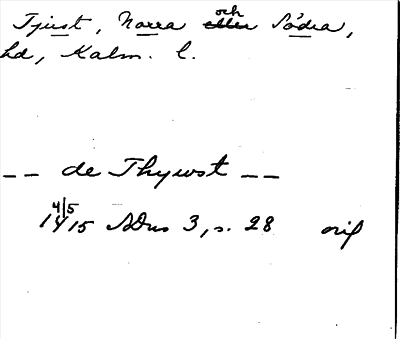 Tjust, Norra och Södra,
hd, Kalm. l.
-- de Thywst --
4/5
1415 SDns 3, s. 28 orig